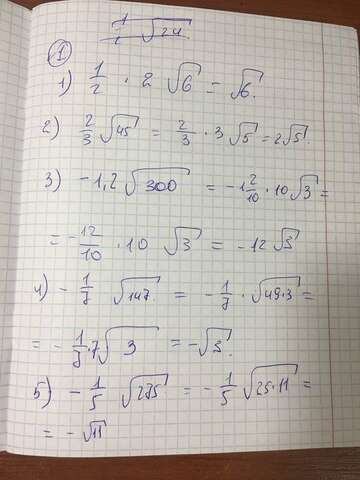 1/2 √24
①
1) 1/2 · 2 √6 = √6.
2) 2/3 √45 = 2/3 · 3 √5 = 2√5.
3) -1,2 √300 = -1 2/10 · 10 √3 =
= -12/10 · 10 √3 = -12 √3
4) - 1/7 √147 = - 1/7 · √49·3 =
= - 1/7 · 7 √3 = -√3.
5) - 1/5 √275 = - 1/5 √25·11 =
= - √11